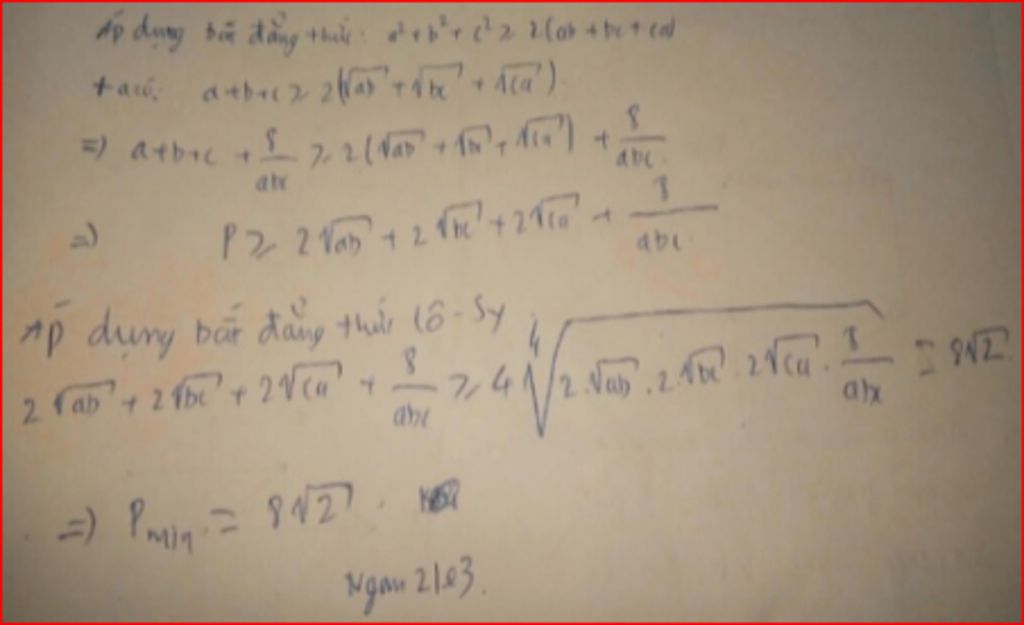 Áp dụng bất đẳng thức: a² + b² + c² ≥ 2(ab + bc + ca)
ta có: a+b+c ≥ 2(√ab + √bc + √ca)
=> a+b+c + 8/abc ≥ 2(√ab + √bc + √ca) + 8/abc
=> P ≥ 2√ab + 2√bc + 2√ca + 8/abc
Áp dụng bất đẳng thức Cô-Sy
2√ab + 2√bc + 2√ca + 8/abc ≥ 4 ∜(2.√ab . 2.√bc . 2√ca . 8/abc) = 8√2
=> Pmin = 8√2 .
Ngan 2103.